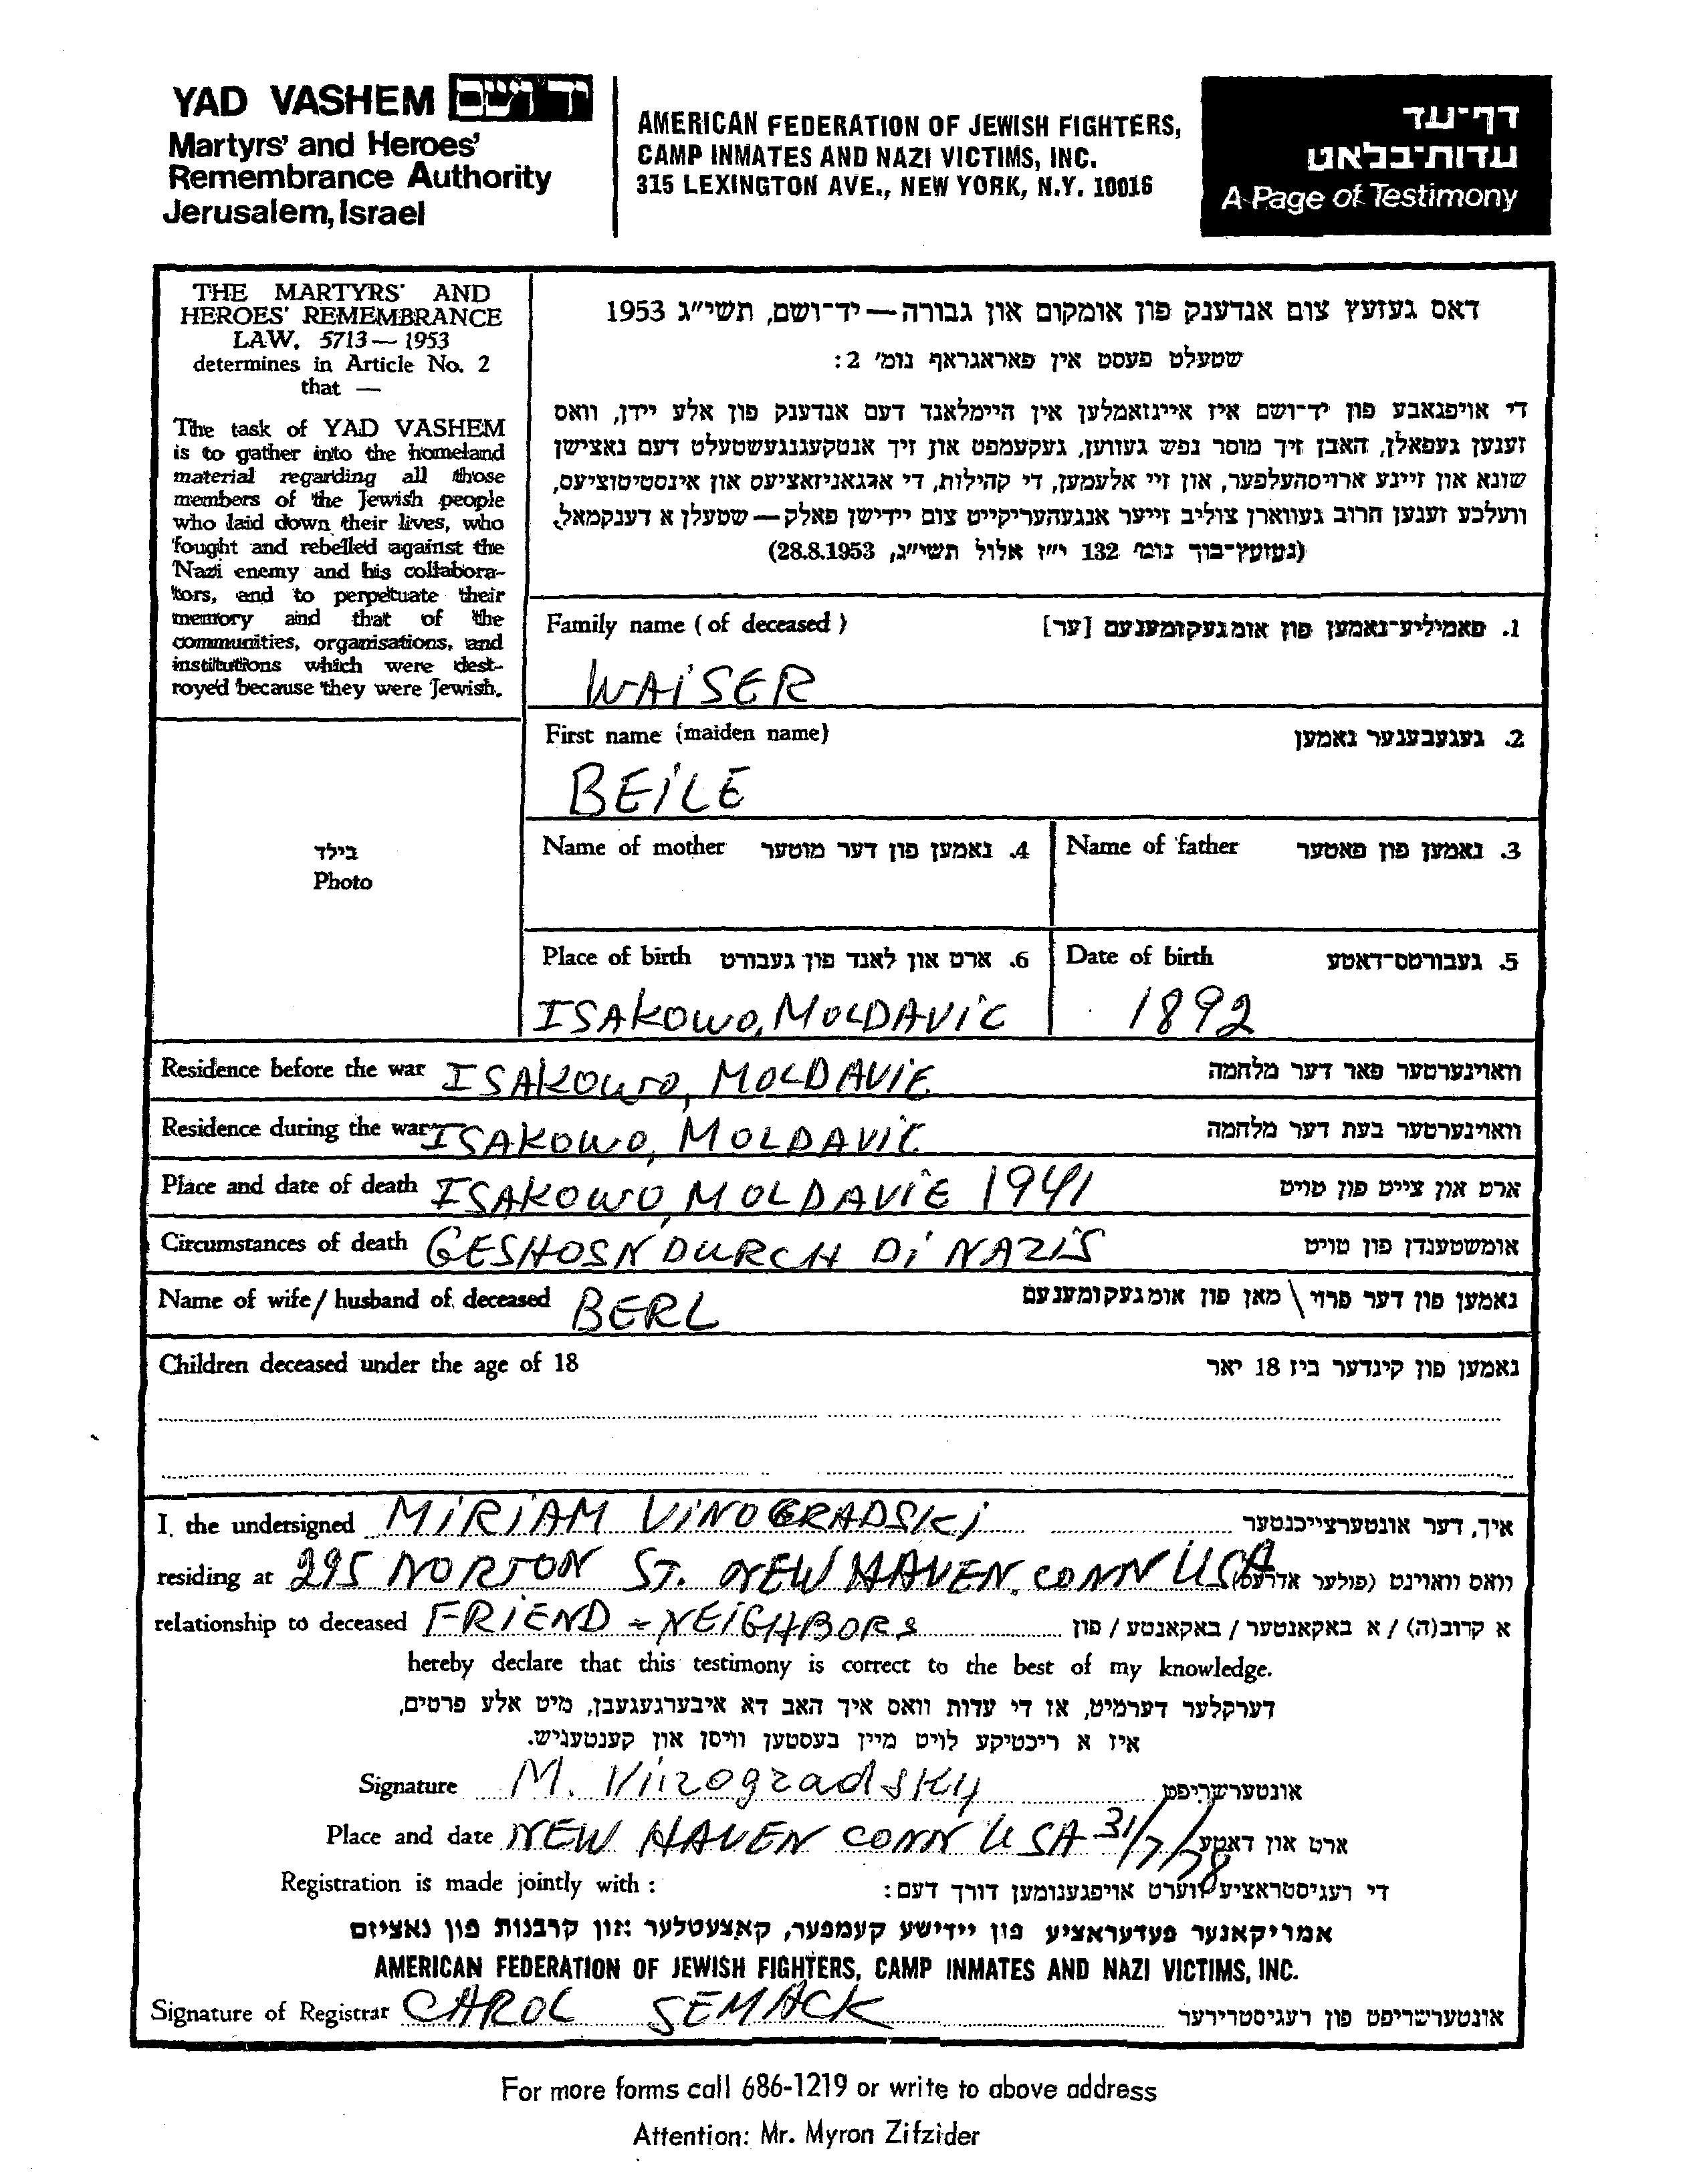 YAD VASHEM יד ושם
Martyrs' and Heroes'
Remembrance Authority
Jerusalem, Israel
AMERICAN FEDERATION OF JEWISH FIGHTERS,
CAMP INMATES AND NAZI VICTIMS, INC.
315 LEXINGTON AVE., NEW YORK, N.Y. 10016
דף-עד
עדות-בלאט
A Page of Testimony
THE MARTYRS' AND
HEROES' REMEMBRANCE
LAW, 5713—1953
determines in Article No. 2
that —
The task of YAD VASHEM
is to gather into the homeland
material regarding all those
members of the Jewish people
who laid down their lives, who
fought and rebelled against the
Nazi enemy and his collabora-
tors, and to perpetuate their
memory and that of the
communities, organisations, and
institutions which were dest-
royed because they were Jewish.
דאס געזעץ צום אנדענק פון אומקום און גבורה — יד-ושם, תשי״ג 1953
שטעלט פעסט אין פאראגראף נומ' 2:
די אויפגאבע פון יד-ושם איז איינזאמלען אין היימלאנד דעם אנדענק פון אלע יידן, וואס
זענען געפאלן, האבן זיך מוסר נפש געווען, געקעמפט און זיך אנטקעגנגעשטעלט דעם נאצישן
שונא און זיינע ארויסהעלפער, און זיי אלעמען, די קהילות, די ארגאניזאציעס און אינסטיטוציעס,
וועלכע זענען חרוב געווארן צוליב זייער אנגעהעריקייט צום יידישן פאלק — שטעלן א דענקמאל.
(געזעץ-בוך נומ' 132 י״ז אלול תשי״ג, 28.8.1953)
Family name (of deceased) 1. פאמיליע-נאמען פון אומגעקומענעם [ער]
WAISER
First name (maiden name) 2. געגעבענער נאמען
BEILE
בילד
Photo
Name of mother 4. נאמען פון דער מוטער
Name of father 3. נאמען פון פאטער
Place of birth 6. ארט און לאנד פון געבורט
ISAKOWO, MOLDAVIE
Date of birth 5. געבורטס-דאטע
1892
Residence before the war ISAKOWO, MOLDAVIE וואוינערטער פאר דער מלחמה
Residence during the war ISAKOWO, MOLDAVIE וואוינערטער בעת דער מלחמה
Place and date of death ISAKOWO, MOLDAVIE 1941 ארט און צייט פון טויט
Circumstances of death GESHOSN DURCH DI NAZIS אומשטענדן פון טויט
Name of wife/husband of deceased BERL נאמען פון דער פרוי \ מאן פון אומגעקומענעם
Children deceased under the age of 18 נאמען פון קינדער ביז 18 יאר
I, the undersigned MIRIAM VINOGRADSKI איך, דער אונטערצייכנטער
residing at 295 NORTON ST. NEW HAVEN, CONN USA וואס וואוינט (פולער אדרעס)
relationship to deceased FRIEND - NEIGHBORS א קרוב(ה) / א באקאנטער / באקאנטע / פון
hereby declare that this testimony is correct to the best of my knowledge.
דערקלער דערמיט, אז די עדות וואס איך האב דא איבערגעגעבן, מיט אלע פרטים,
איז א ריכטיקע לויט מיין בעסטען וויסן און קענטעניש.
Signature M. Vinogradsky אונטערשריפט
Place and date NEW HAVEN CONN USA 31/7/78 ארט און דאטע
Registration is made jointly with: די רעגיסטראציע ווערט אויפגענומען דורך דעם:
אמריקאנער פעדעראציע פון יידישע קעמפער, קאצעטלער און קרבנות פון נאציזם
AMERICAN FEDERATION OF JEWISH FIGHTERS, CAMP INMATES AND NAZI VICTIMS, INC.
Signature of Registrar CAROL SEMACK אונטערשריפט פון רעגיסטרירער
For more forms call 686-1219 or write to above address
Attention: Mr. Myron Zifzider